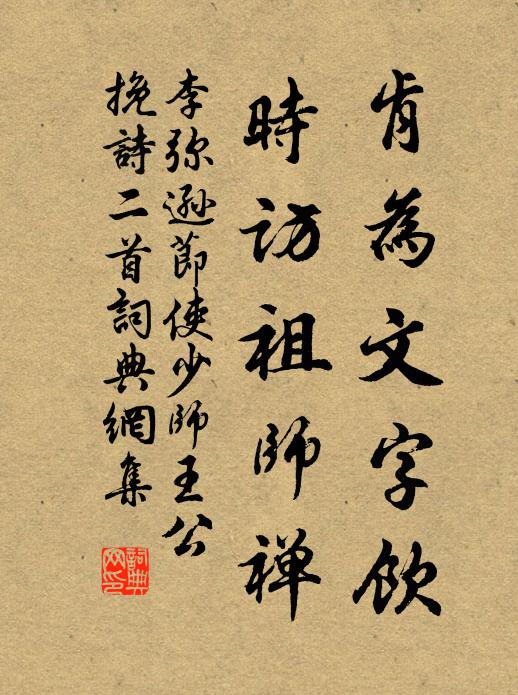 肯為文字飲
時訪祖師禅
李弥遜節使少師王公
挽詩二首詞典網集
詞典網印